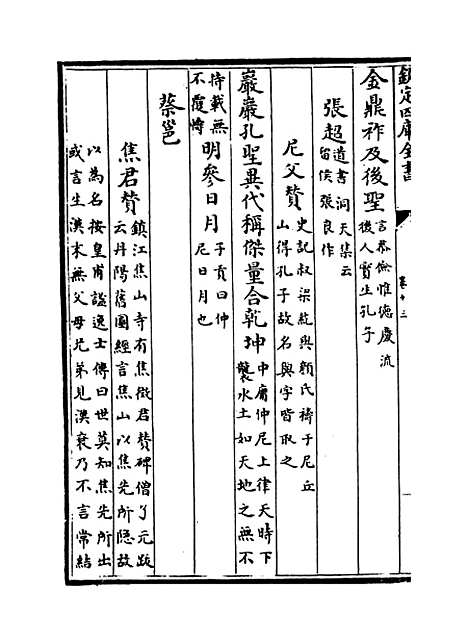 欽定四庫全書
卷十三
金鼎祚及後聖 言恭儉惟德慶流
後人實生孔子
張超 道書洞天集云
留侯張良作
尼父贊 史記叔梁紇與顏氏禱于尼丘
山得孔子故名與字皆取之
巖巖孔聖異代稱傑量合乾坤 中庸仲尼上律天時下
襲水土如天地之無不
持載無
不覆幬 明參日月 子貢曰仲
尼日月也
蔡邕
焦君贊 鎮江焦山寺有焦徵君贊碑僧了元跋
云丹陽舊圖經言焦山以焦先所隱故
以為名按皇甫謐逸士傳曰世莫知焦先所出
或言生漢末無父母兄弟見漢衰乃不言常結